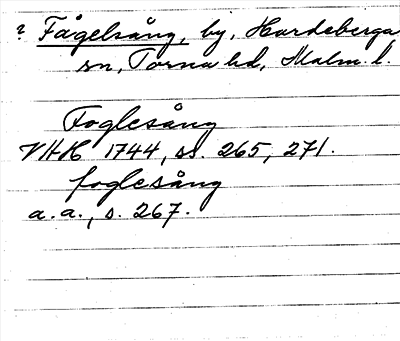 ? Fågelsång, by, Hardeberga
sn, Torna hd, Malm. l.
Foglesång
VHH 1744, ss. 265, 271.
foglesång
a. a., s. 267.